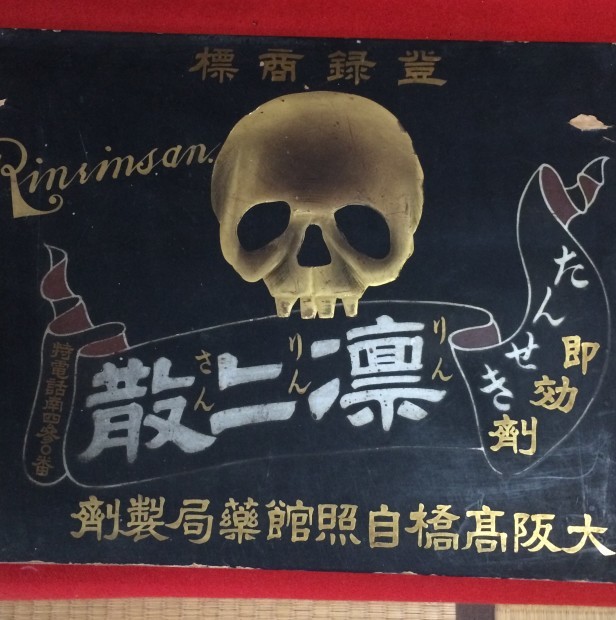 登録商標
Rinrinsan.
りんりんさん
凛〻散
たんせき
即効劑
特電話南四參〇番
大阪髙橋自照館藥局製劑